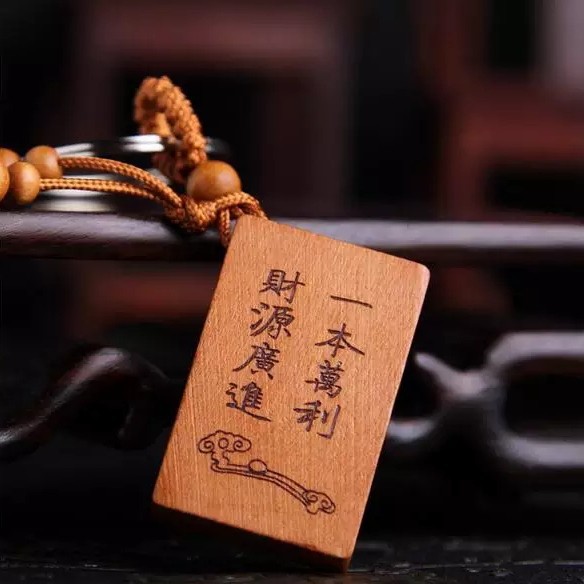 一本萬利
財源廣進